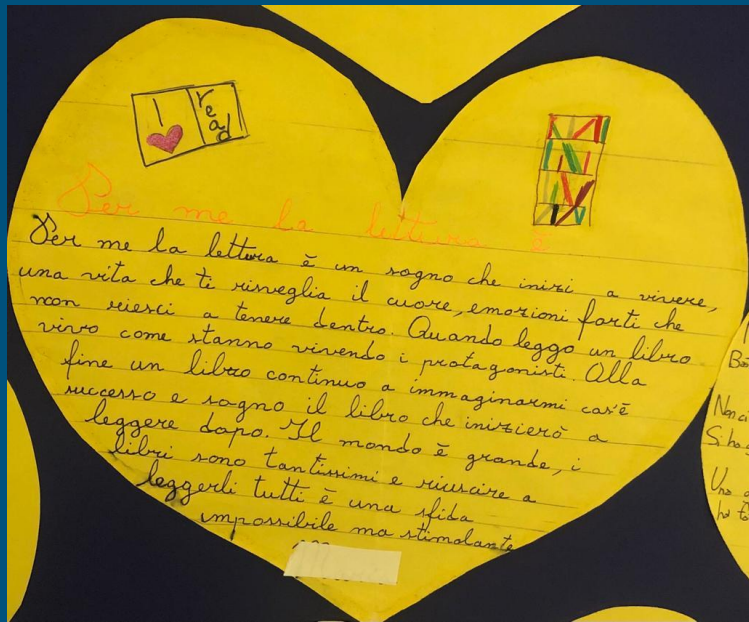 I read
Per me la lettura è
Per me la lettura è un sogno che inizi a vivere,
una vita che ti risveglia il cuore, emozioni forti che
non riesci a tenere dentro. Quando leggo un libro
vivo come stanno vivendo i protagonisti. Alla
fine un libro continuo a immaginarmi cos'è
successo e sogno il libro che inizierò a
leggere dopo. Il mondo è grande, i
libri sono tantissimi e riuscire a
leggerli tutti è una sfida
impossibile ma stimolante